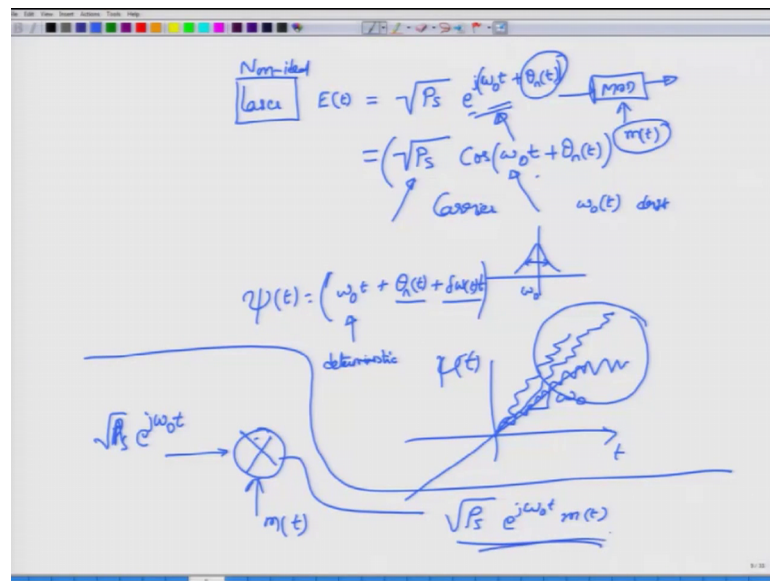 File Edit View Insert Actions Tools Help
Non-ideal
Laser E(t) = √Ps e^j(ω₀t + θₙ(t)) MOD
= (√Ps Cos(ω₀t + θₙ(t)) m(t)
Carrier ω₀(t)
ω₀
ψ(t) = (ω₀t + θₙ(t) + δω(t)t)
deterministic ψ(t)
ω₀
t
√Ps e^jω₀t
m(t)
√Ps e^jω₀t m(t)